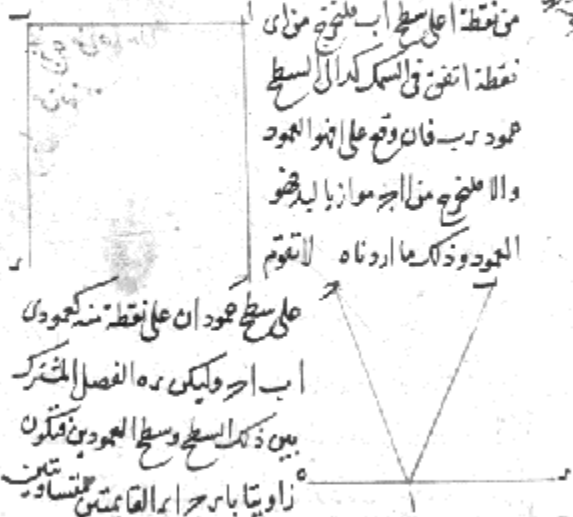 من نقطة ا على سطح اب فلنخرج من اى
نقطة اتفق فى السمك كد الى السطح
عمود د ب فان وقع على ا فهو العمود
والا فلنخرج من ا ا ج موازيا ل ب د فهو
العمود وذلك ما اردناه لا تقوم
على سطح عمودان على نقطة منه كعمودى
ا ب ا ج وليكن د ه الفصل المشترك
بين ذلك السطح وسطح العمودين فتكون
زاويتا ب ا د ج ا د القايمتين متساويتين